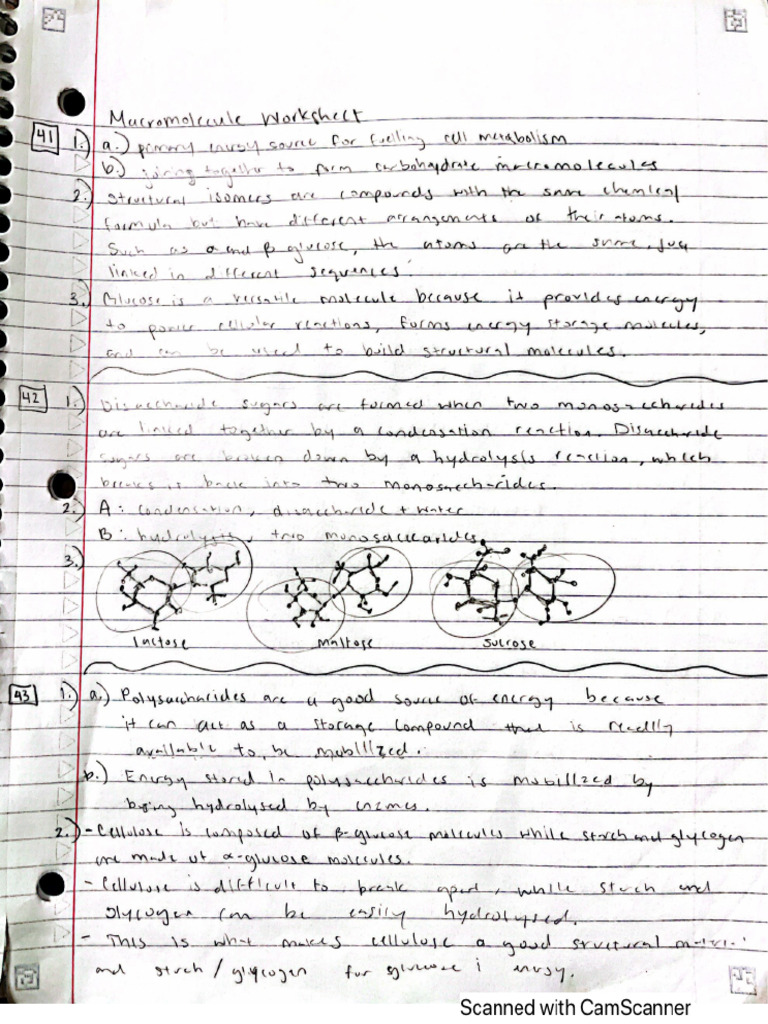 Macromolecule Worksheet
41 1.) a.) primary energy source for fuelling cell metabolism
b.) joining together to form carbohydrate macromolecules
2.) Structural isomers are compounds with the same chemical
formula but have different arrangements of their atoms.
Such as α and β glucose, the atoms are the same, just
linked in different sequences.
3.) Glucose is a versatile molecule because it provides energy
to power cellular reactions, forms energy storage molecules,
and can be used to build structural molecules.
42 1.) Disaccharide sugars are formed when two monosaccharides
are linked together by a condensation reaction. Disaccharide
sugars are broken down by a hydrolysis reaction, which
breaks it back into two monosaccharides.
2.) A: condensation, disaccharide + water
B: hydrolysis, two monosaccarides
3.)
lactose maltose sucrose
43 1.) a.) Polysaccharides are a good source of energy because
it can act as a storage compound that is readily
available to be mobilized.
b.) Energy stored in polysaccharides is mobilized by
being hydrolysed by enzymes.
2.) - Cellulose is composed of β-glucose molecules while starch and glycogen
are made of α-glucose molecules.
- Cellulose is difficult to break apart, while starch and
glycogen can be easily hydrolysed.
- This is what makes cellulose a good structural
and starch/glycogen for energy.
Scanned with CamScanner